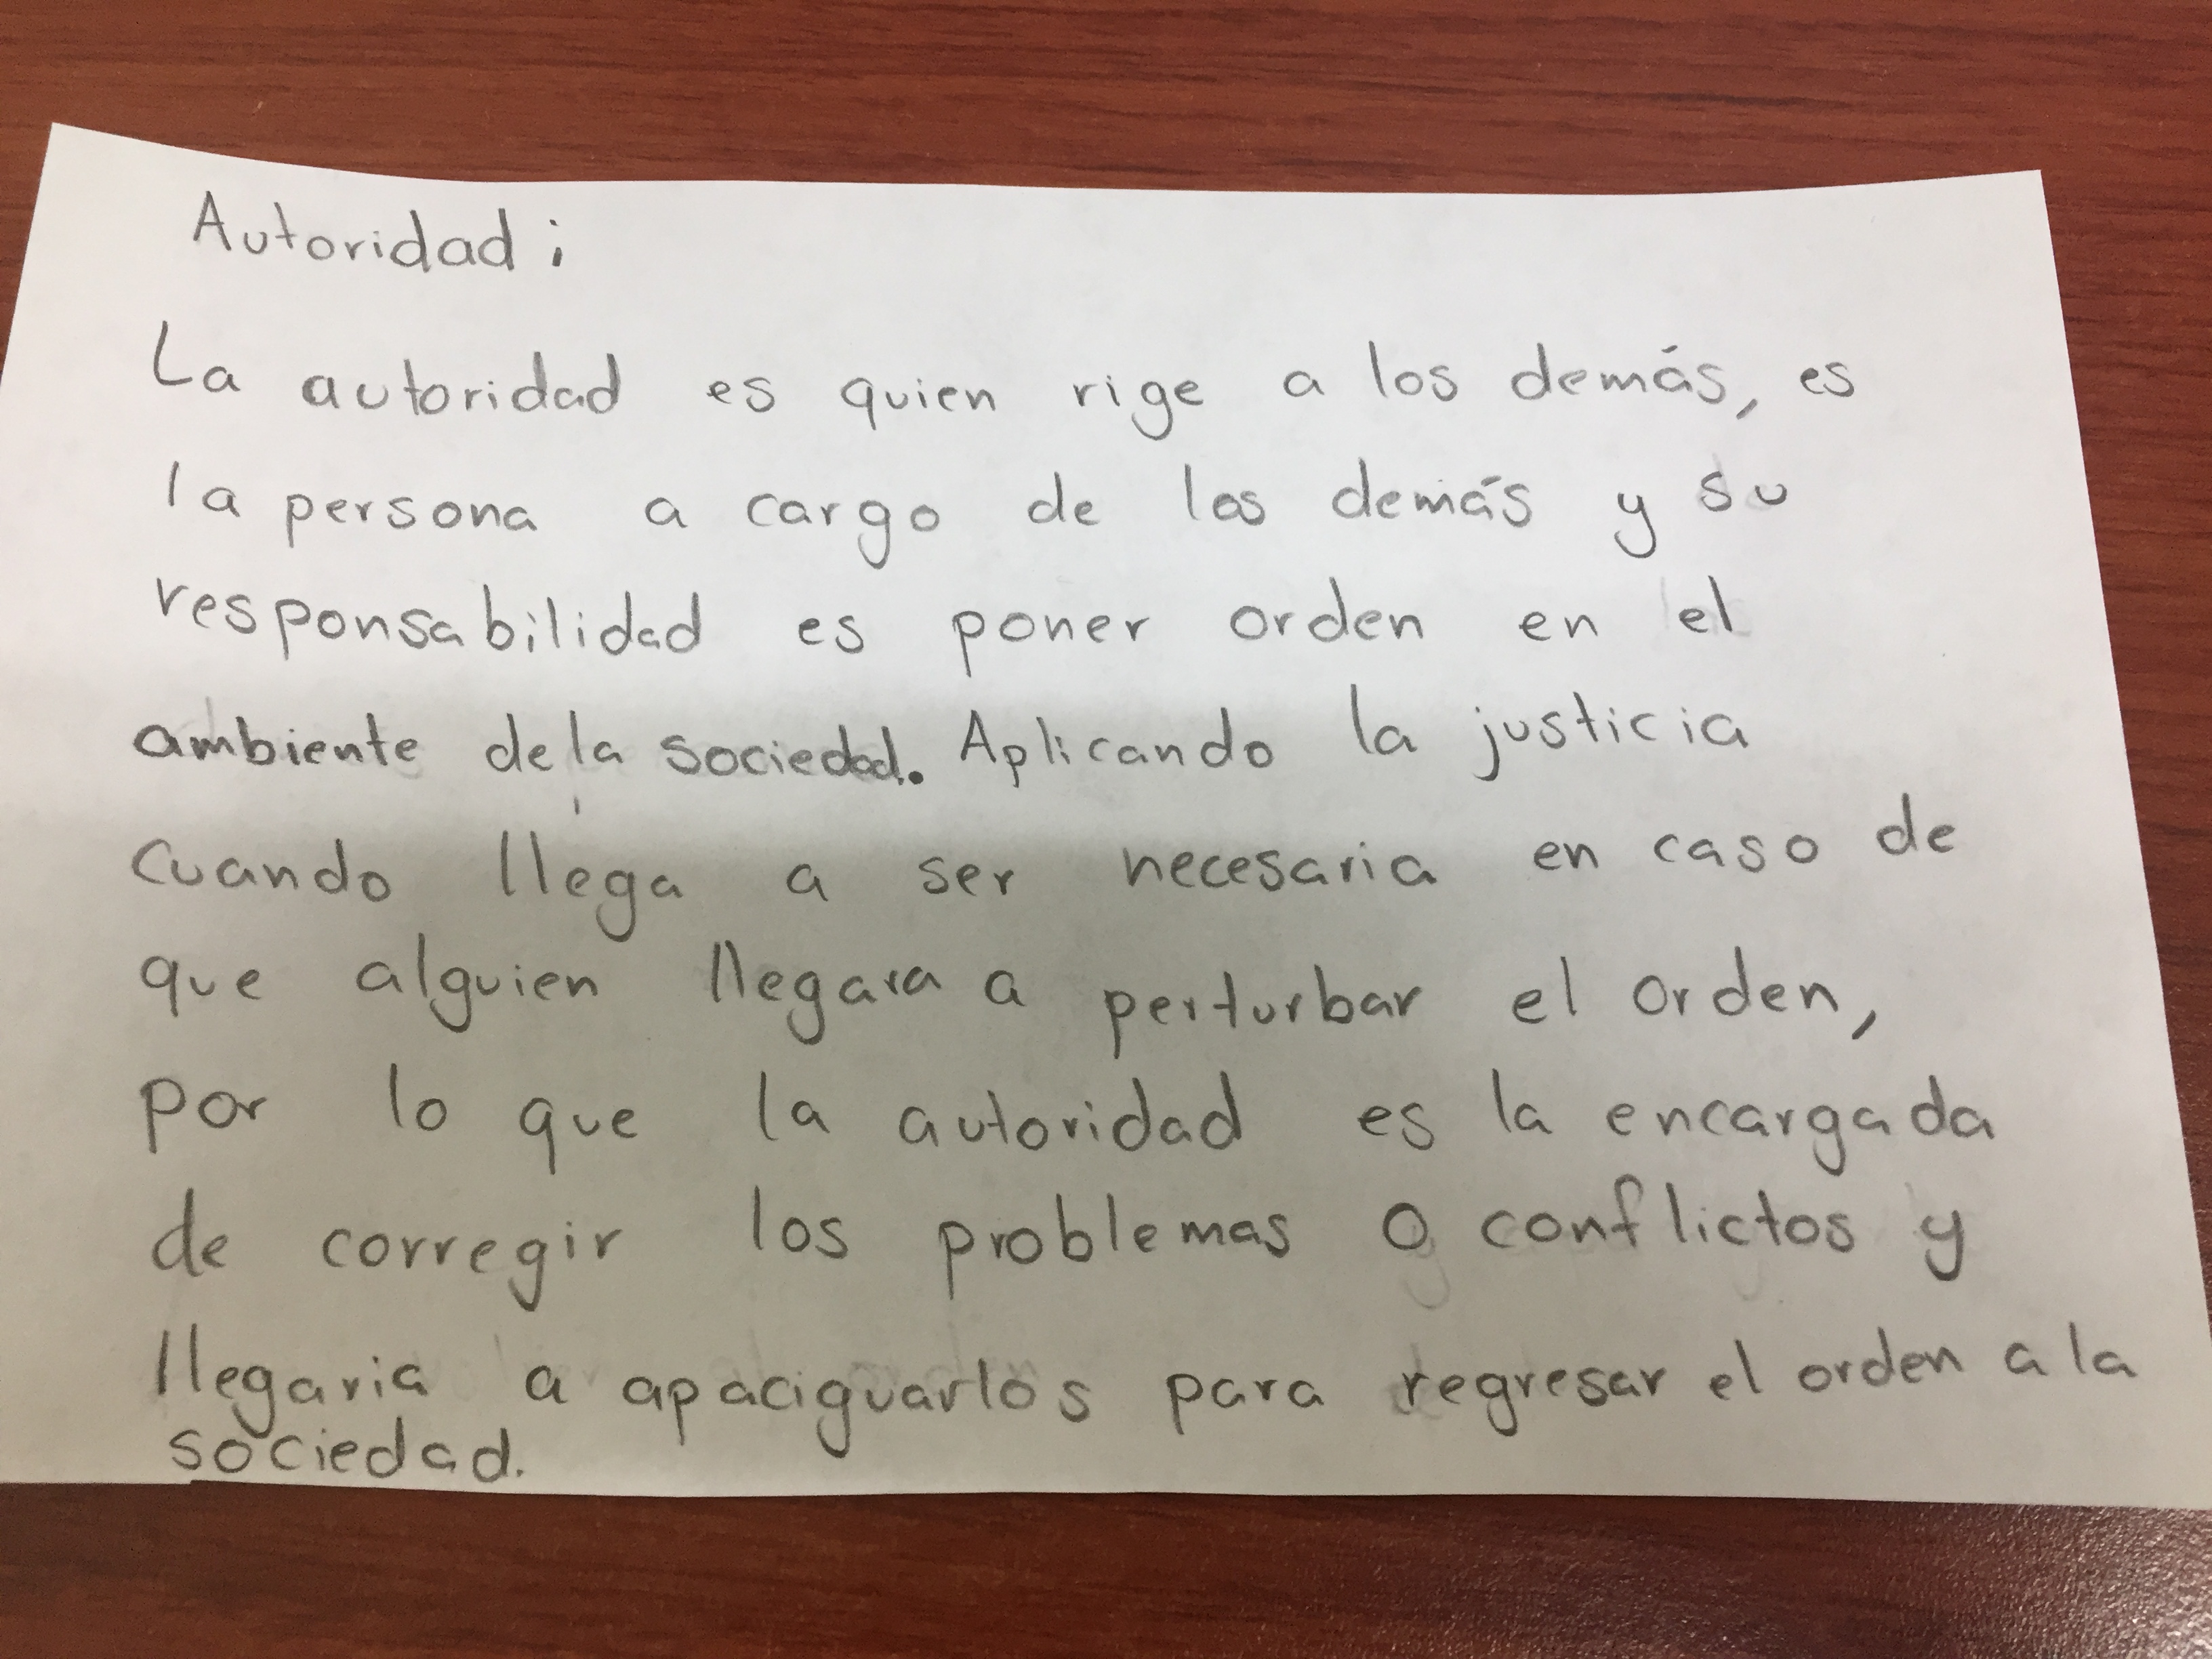 Autoridad;
La autoridad es quien rige a los demás, es
la persona a cargo de los demás y su
responsabilidad es poner orden en el
ambiente de la sociedad. Aplicando la justicia
cuando llega a ser necesaria en caso de
que alguien llegara a perturbar el orden,
por lo que la autoridad es la encargada
de corregir los problemas o conflictos y
llegaria a apaciguarlos para regresar el orden a la
sociedad.